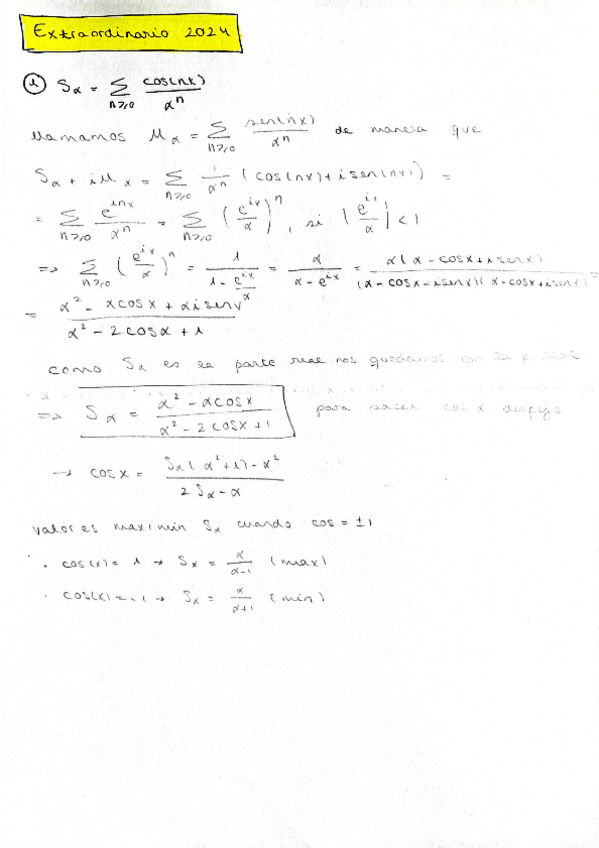 Extraordinario 2024
① Sα = Σ n≥0 cos(nx)/αⁿ
llamamos Mα = Σ n≥0 sen(nx)/αⁿ de manera que
Sα + iMα = Σ n≥0 1/αⁿ (cos(nx) + i sen(nx)) =
= Σ n≥0 e^{inx}/αⁿ = Σ n≥0 (e^{ix}/α)ⁿ, si |e^{ix}/α| < 1
=> Σ n≥0 (e^{ix}/α)ⁿ = 1/(1 - e^{ix}/α) = α/(α - e^{ix}) = α(α - cosx + i senx)/((α - cosx - i senx)(α - cosx + i senx)) =
= (α² - αcosx + αi senx)/(α² - 2cosα + 1)
como Sα es la parte real nos quedamos con la
=> Sα = (α² - αcosx)/(α² - 2cosx + 1) para sacar cos x despejo
→ cosx = (Sα(α² + 1) - α²)/(2Sα - α)
valores max/min Sα cuando cos = ±1
· cos(x) = 1 → Sα = α/(α-1) (max)
· cos(x) = -1 → Sα = α/(α+1) (min)